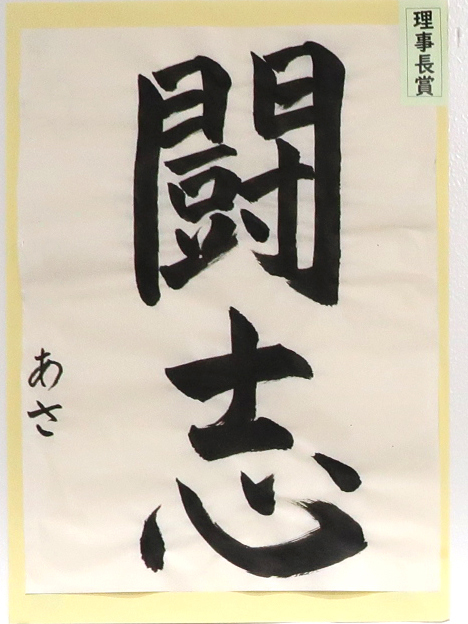 理事長賞
闘志
あさ